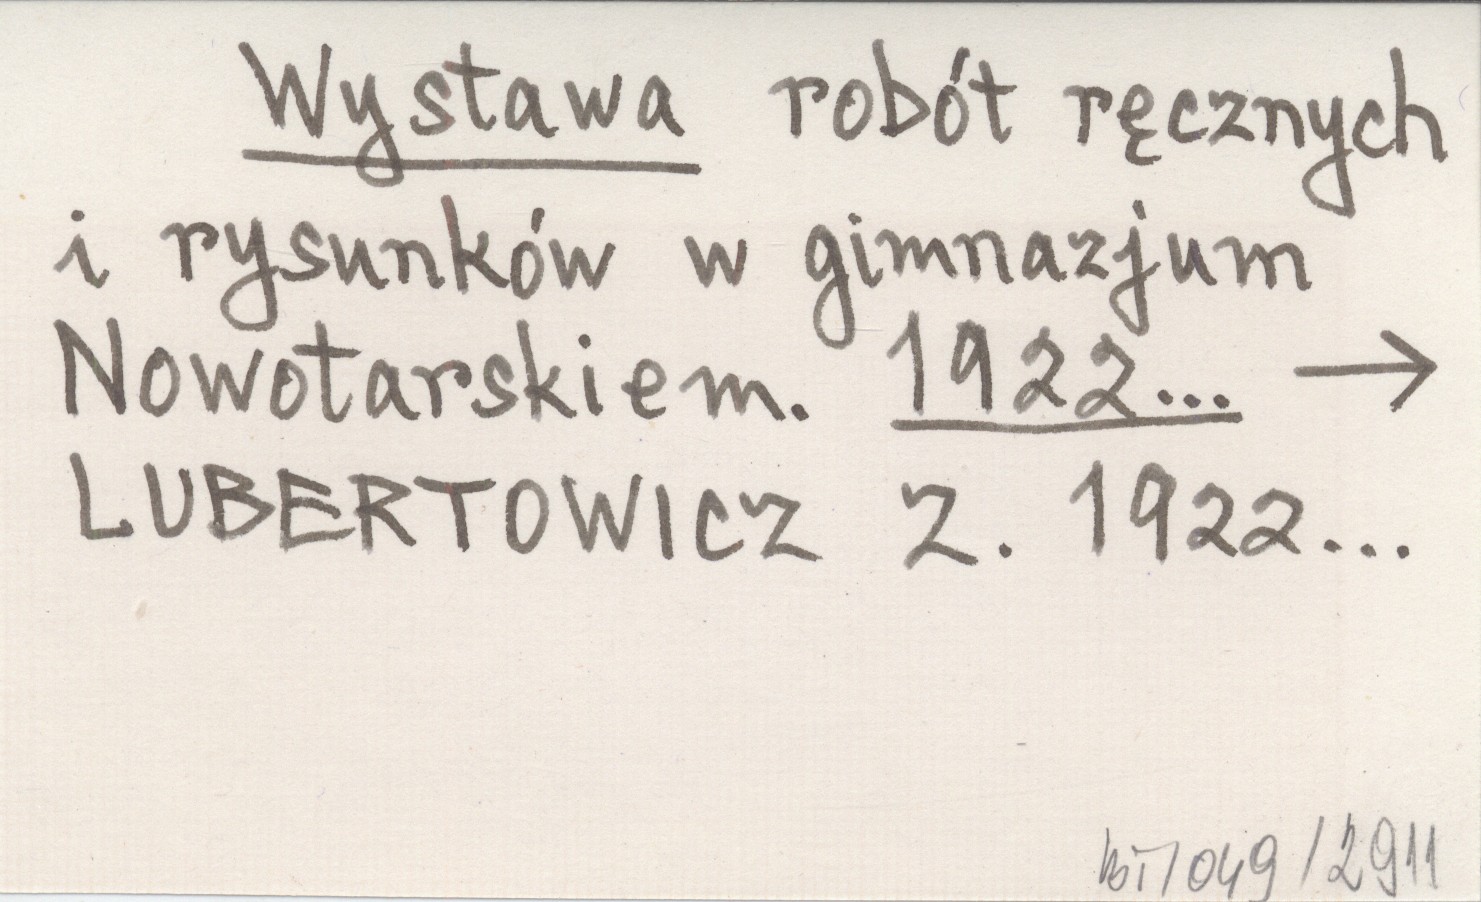 Wystawa robót ręcznych
i rysunków w gimnazjum
Nowotarskiem. 1922... →
LUBERTOWICZ Z. 1922...
/049/2911